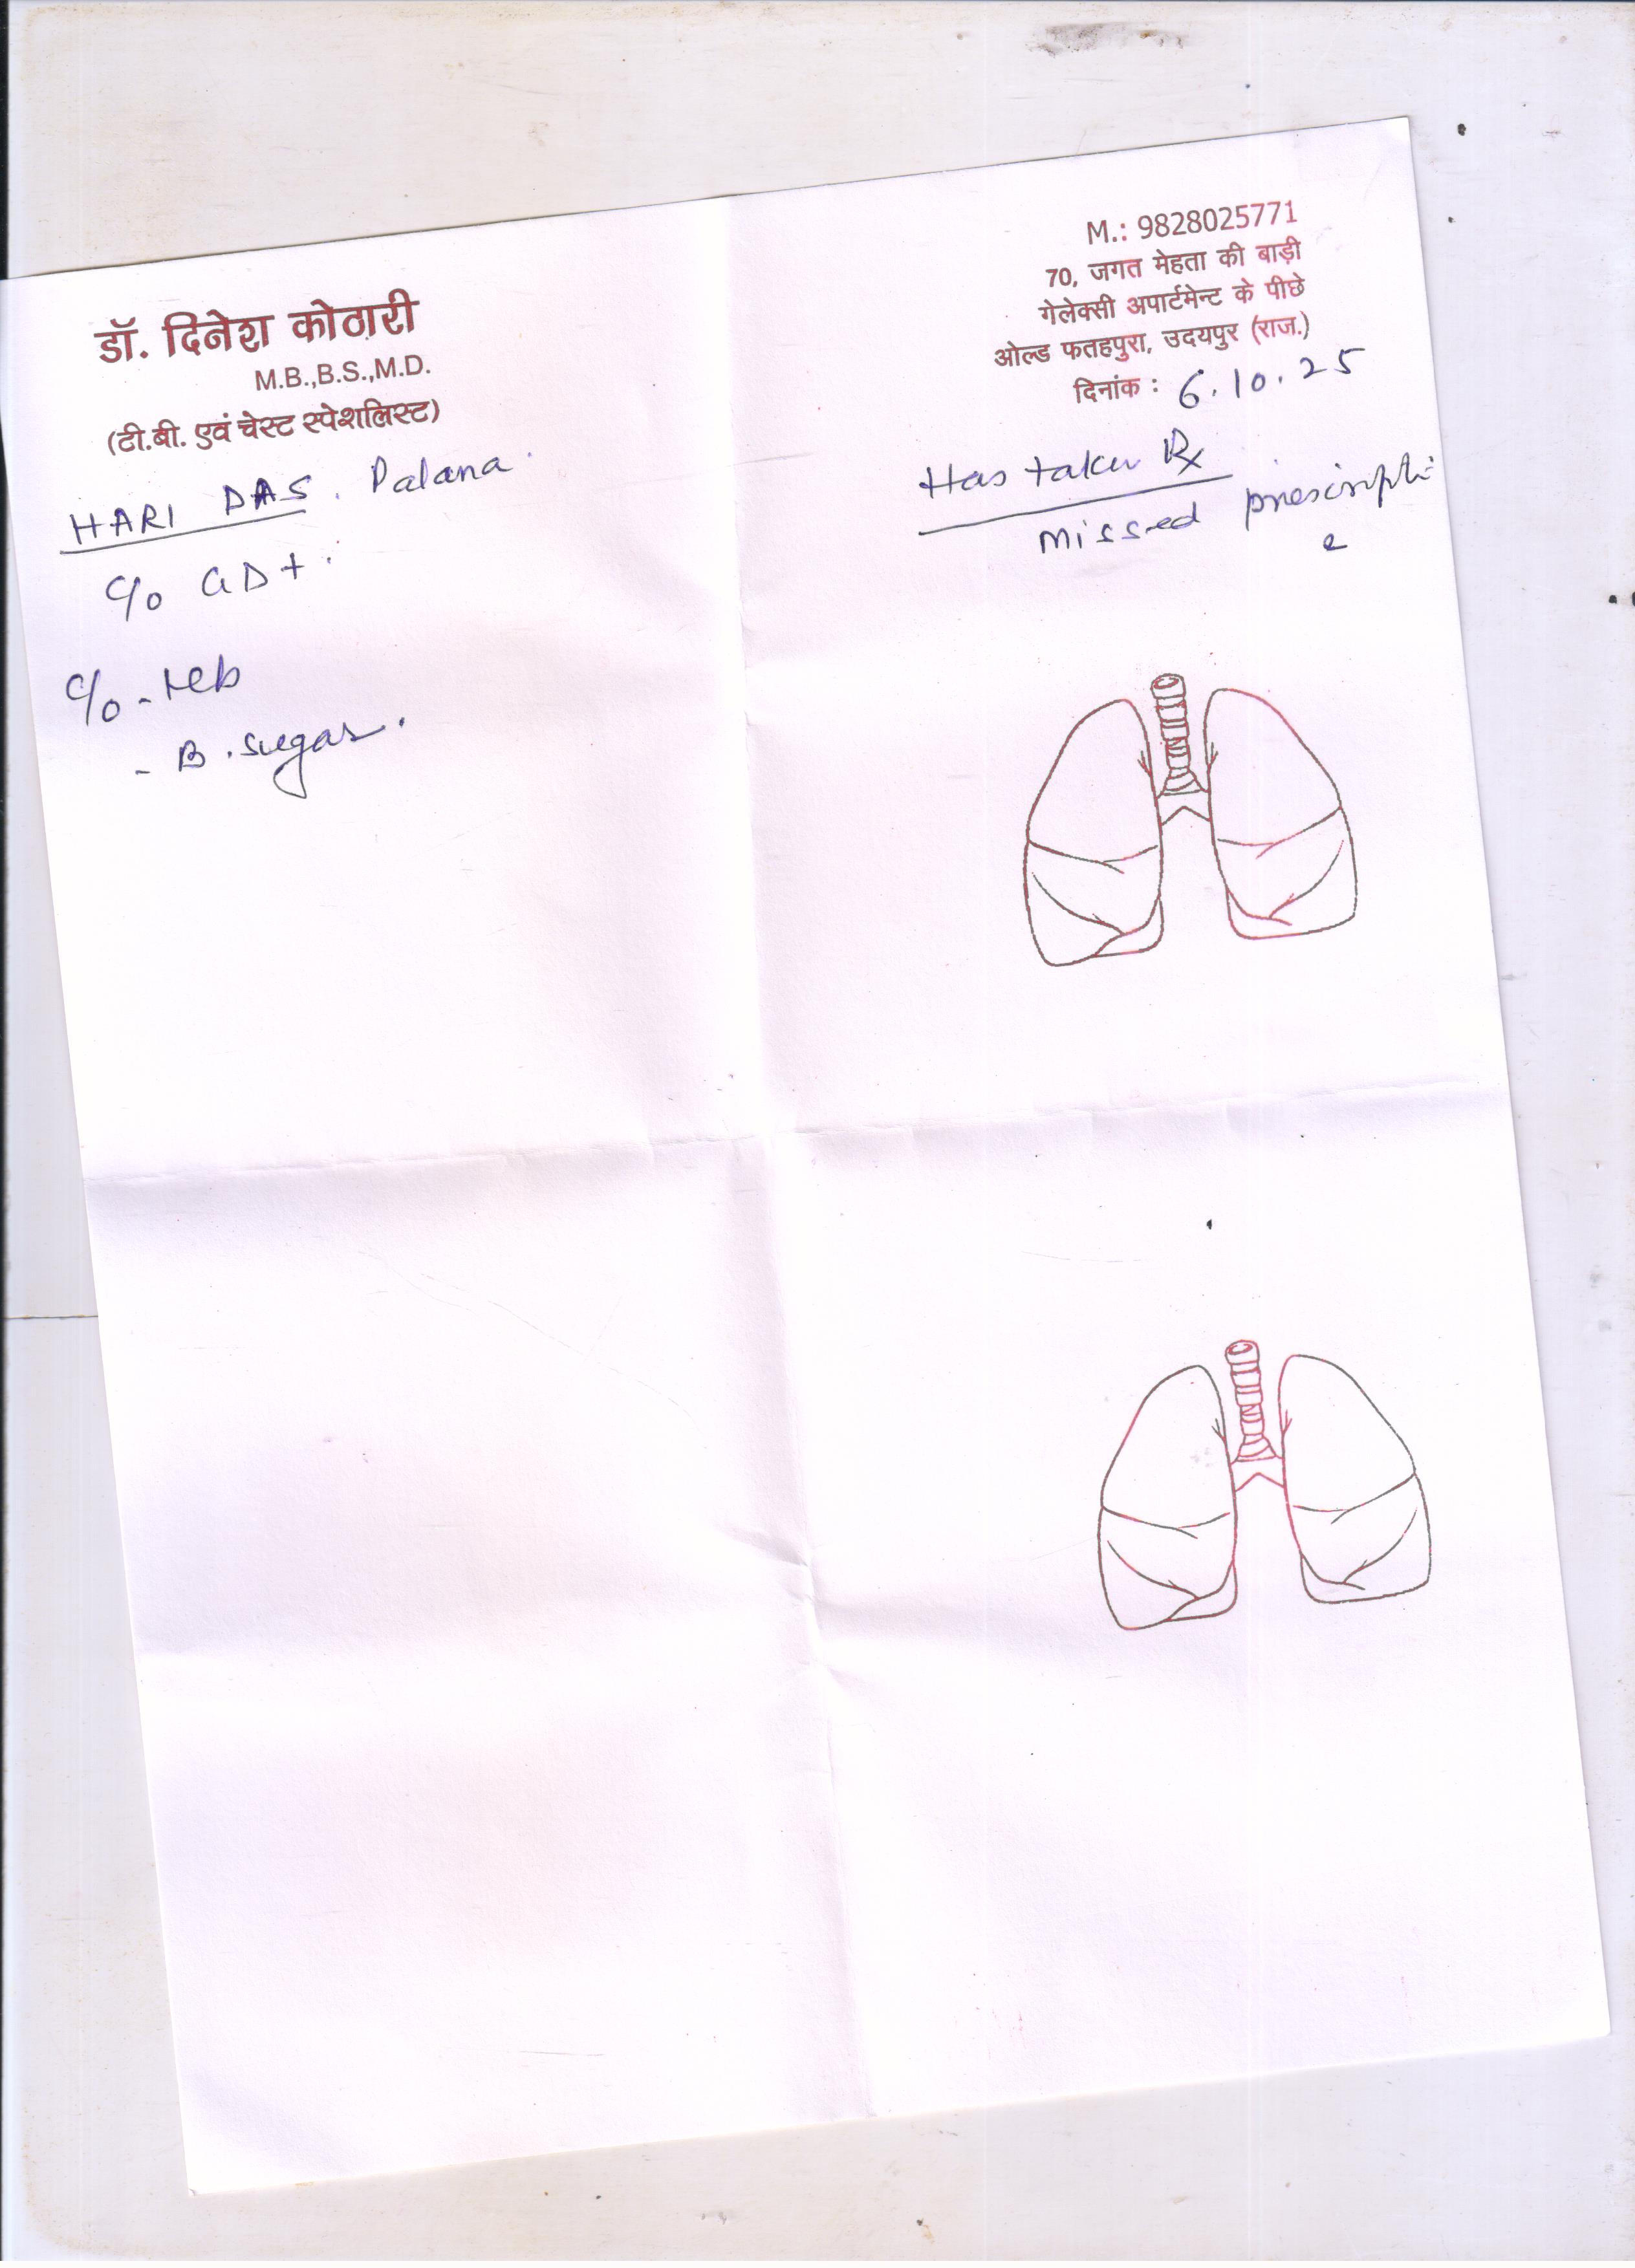 डॉ. दिनेश कोठारी
M.B.,B.S.,M.D.
(टी.बी. एवं चेस्ट स्पेशलिस्ट)
M.: 9828025771
70, जगत मेहता की बाड़ी
गेलेक्सी अपार्टमेन्ट के पीछे
ओल्ड फतहपुरा, उदयपुर (राज.)
दिनांक : 6.10.25
HARI DAS. Palana.
C/o GD+.
C/o - Hb
- B. sugar.
Has taken Rx
missed